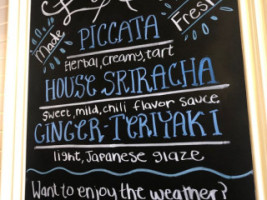 Made
Fresh
PICCATA
Herbal, creamy, tart
HOUSE SRIRACHA
Sweet, mild, chili flavor sauce
GINGER-TERIYAKI
light, Japanese glaze
Want to enjoy the weather?